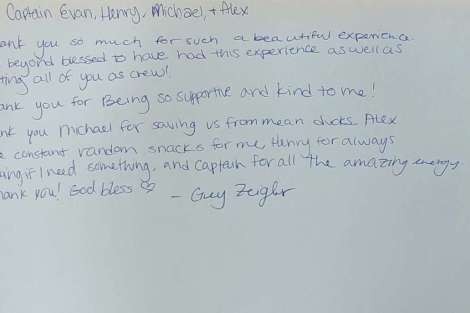 Captain Evan, Henry, Michael, + Alex
ank you so much for such a beautiful experience.
beyond blessed to have had this experience as well as
ting all of you as crew!
ank you for Being so supportive and kind to me!
nk you Michael for saving us from mean ducks. Alex
e constant random snacks for me, Henry for always
ing if I need something, and Captain for all the amazing energy.
hank you! God bless ♡ – Guy Zeigler